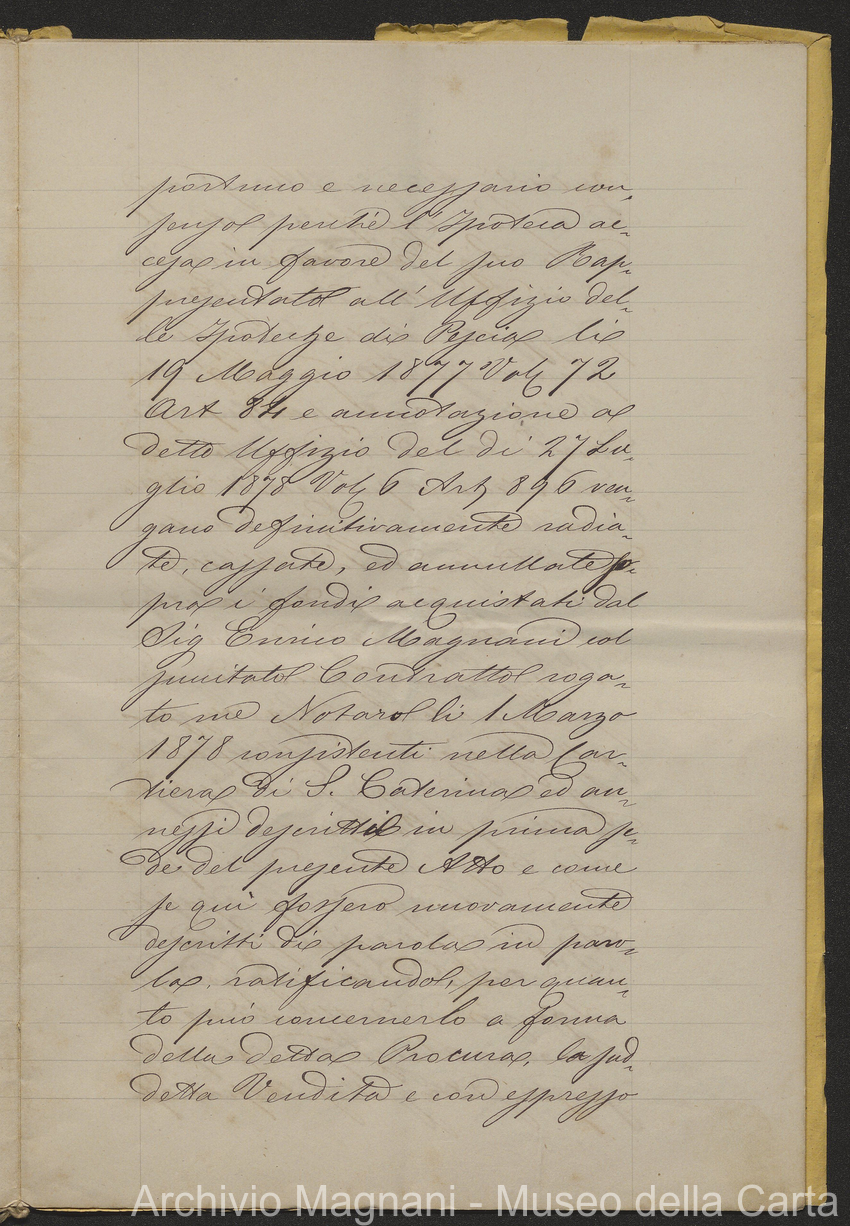 portuno e necessario con-
senso perché l'Ipoteca ac-
cesa in favore del suo Rap-
presentato all'Uffizio del-
le Ipoteche di Pescia li
19 Maggio 1877 Vol 72
Art 84 e annotazione a
detto Uffizio del dì 27 Lu-
glio 1878 Vol 6 Art 896 ven-
gano definitivamente radia-
te, cassate, ed annullate so-
pra i fondi acquistati dal
Sig Enrico Magnani col
sucitato Contratto roga-
to me Notaro li 1 Marzo
1878 consistenti nella Car-
tiera di S. Caterina ed an-
nessi descritti in prima se-
de del presente Atto e come
se quì fossero nuovamente
descritti di parola in paro-
la, ratificando, per quan-
to può concernerlo a forma
della detta Procura, la sud-
detta Vendita e con espresso
Archivio Magnani - Museo della Carta